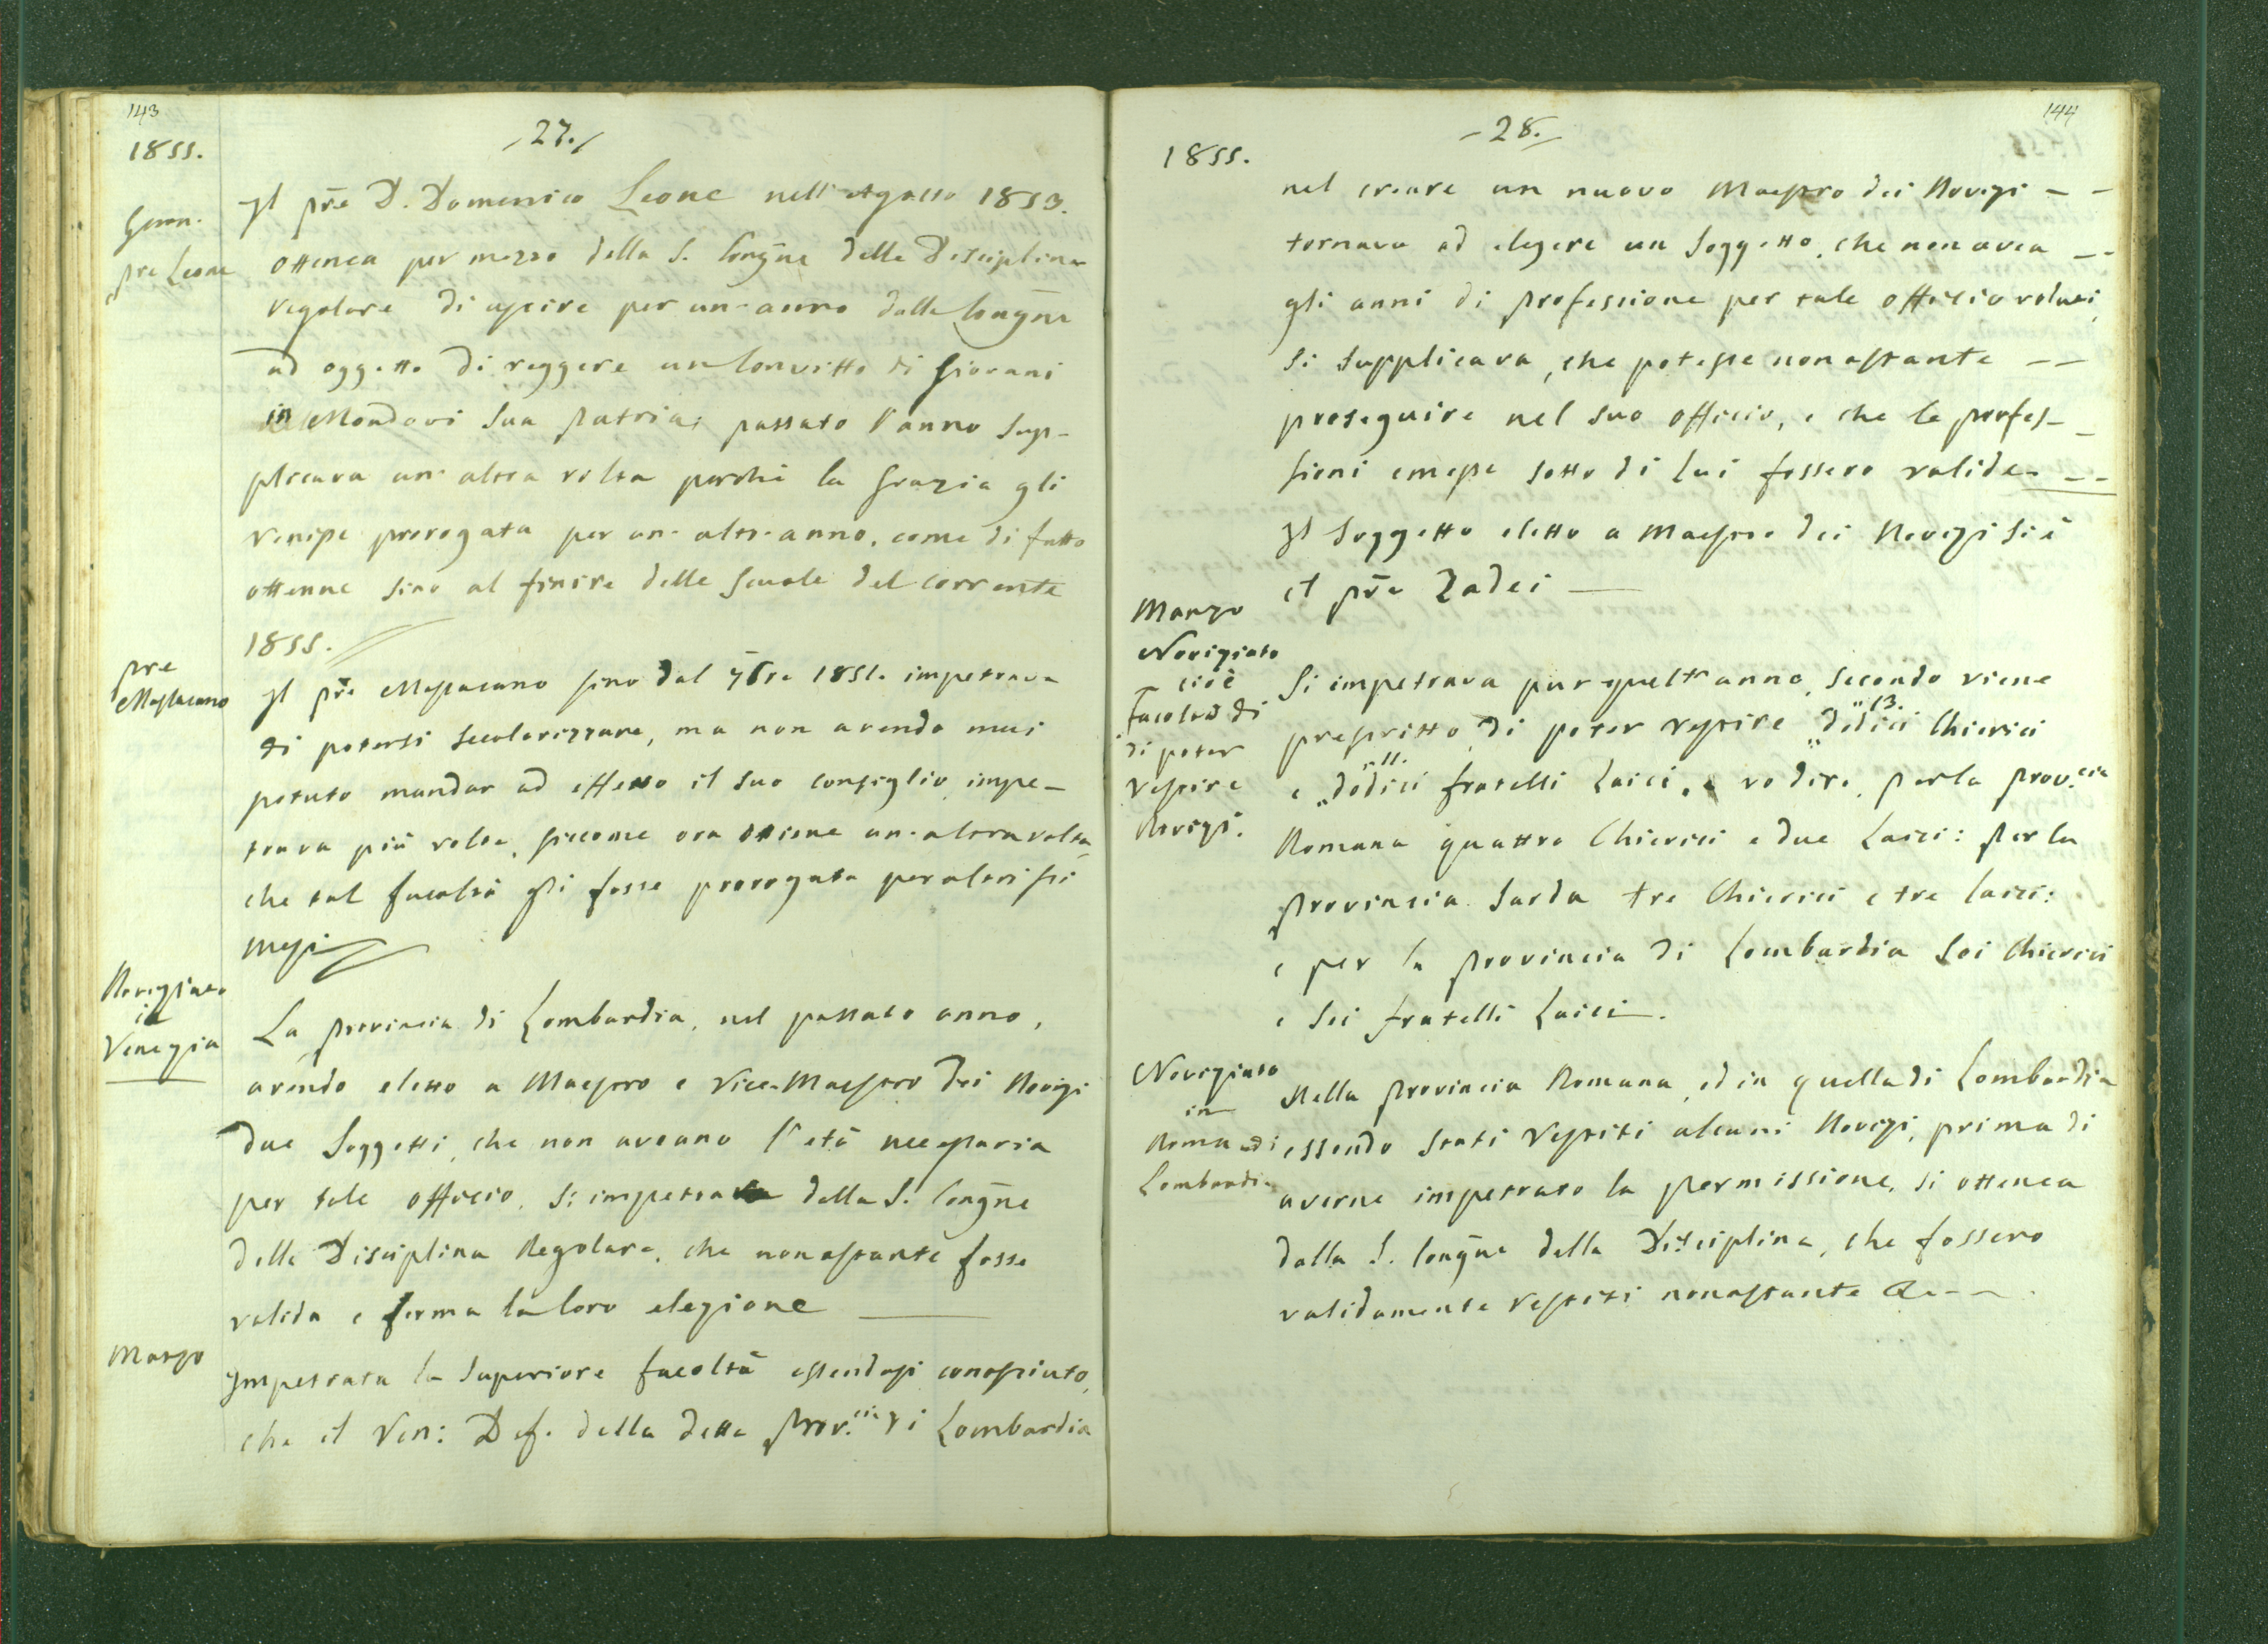 143
27.
1855.
Genn.
pre Leone
Il p̄re D. Domenico Leone nell'Agosto 1853.
ottenea per mezzo della S. Congn̄e della Disciplina
regolare di uscire per un'anno dalla Congn̄e
ad oggetto di reggere un Convitto di Giovani
in Mondovi sua patria; passato l'anno sup-
plicava un'altra volta perchè la Grazia gli
venisse prorogata per un'altr'anno, come di fatto
ottenne sino al finire delle scuole del corrente
1855.
pre
Massacano
Il p̄re Massacano sino dal 7bre 1851. impetrava
di potersi secolarizzare, ma non avendo mai
potuto mandar ad effetto il suo consiglio impe-
trava più volte, siccome ora ottiene un'altra volta
che tal facoltà gli fosse prorogata per altri sei
mesi
Noviziato
in
Venezia
La provincia di Lombardia, nel passato anno,
avendo eletto a Maestro e Vice-Maestro dei Novizi
due Soggetti, che non aveano l'età necessaria
per tale officio, si impetra dalla S. Congn̄e
della Disciplina Regolare, che nonostante fosse
valida e ferma la loro elezione
Marzo
Impetrata la superiore facoltà essendosi conosciuto,
che il Ven: Def. della detta Prov.cia di Lombardia
144
- 28. -
1855.
nel creare un nuovo Maestro dei Novizi - -
tornava ad elegere un Soggetto, che non avea - -
gli anni di professione per tale officio voluti,
si supplicava, che potesse nonostante - -
proseguire nel suo officio, e che le profes-
sioni emesse sotto di lui fossero valide. - -
Il Soggetto eletto a Maestro dei Novizi si è
il p̄re Zadei
Marzo
Noviziato
cioè
facoltà di
di poter
vestire
Novizi.
Si impetrava pur quest'anno, secondo viene
prescritto, di poter vestire "dodici Chierici
" 13.
e "dodici fratelli Laici, a vo dire, per la Prov.cia
" 11.
Romana quattro Chierici e due Laici: per la
Provincia Sarda tre Chierici e tre Laici:
e per la Provincia di Lombardia sei Chierici
e sei fratelli Laici.
Noviziato
in
Roma e di
Lombardia
Nella Provincia Romana, ed in quella di Lombardia
essendo stati vestiti alcuni Novizi, prima di
averne impetrato la permissione, si ottenea
dalla S. Congn̄e della Disciplina, che fossero
validamente vestiti nonostante &---